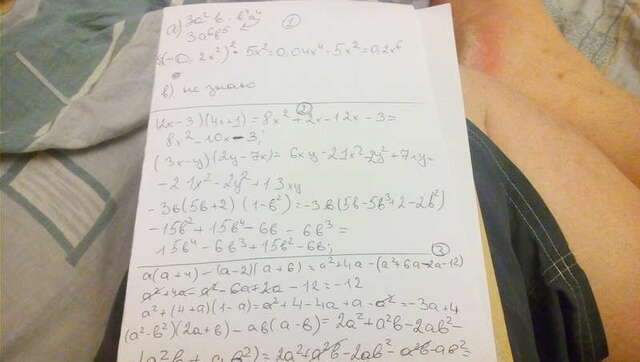 а) 3a²b · b⁴a⁴ ①
3a⁶b⁵
(-0,2x²)² · 5x² = 0,04x⁴ · 5x² = 0,2x⁶
в) не знаю
②
(2x-3)(4x+1) = 8x² + 2x - 12x - 3 =
8x² - 10x - 3;
(3x-y)(2y-7x) = 6xy - 21x² - 2y² + 7xy =
-21x² - 2y² + 13xy
-3b(5b+2)(1-b²) = -3b(5b-5b³+2-2b²)
-15b² + 15b⁴ - 6b - 6b³ =
15b⁴ - 6b³ + 15b² - 6b;
③
a(a+4) - (a-2)(a+6) = a² + 4a - (a² + 6a - 2a - 12)
a² + 4a - a² - 6a + 2a - 12 = -12
a² + (4+a)(1-a) = a² + 4 - 4a + a - a² = -3a + 4
(a²-b²)(2a+b) - ab(a-b) = 2a² + a²b - 2ab² -
= 2a² + a²b - 2ab² - a²b - ab² =